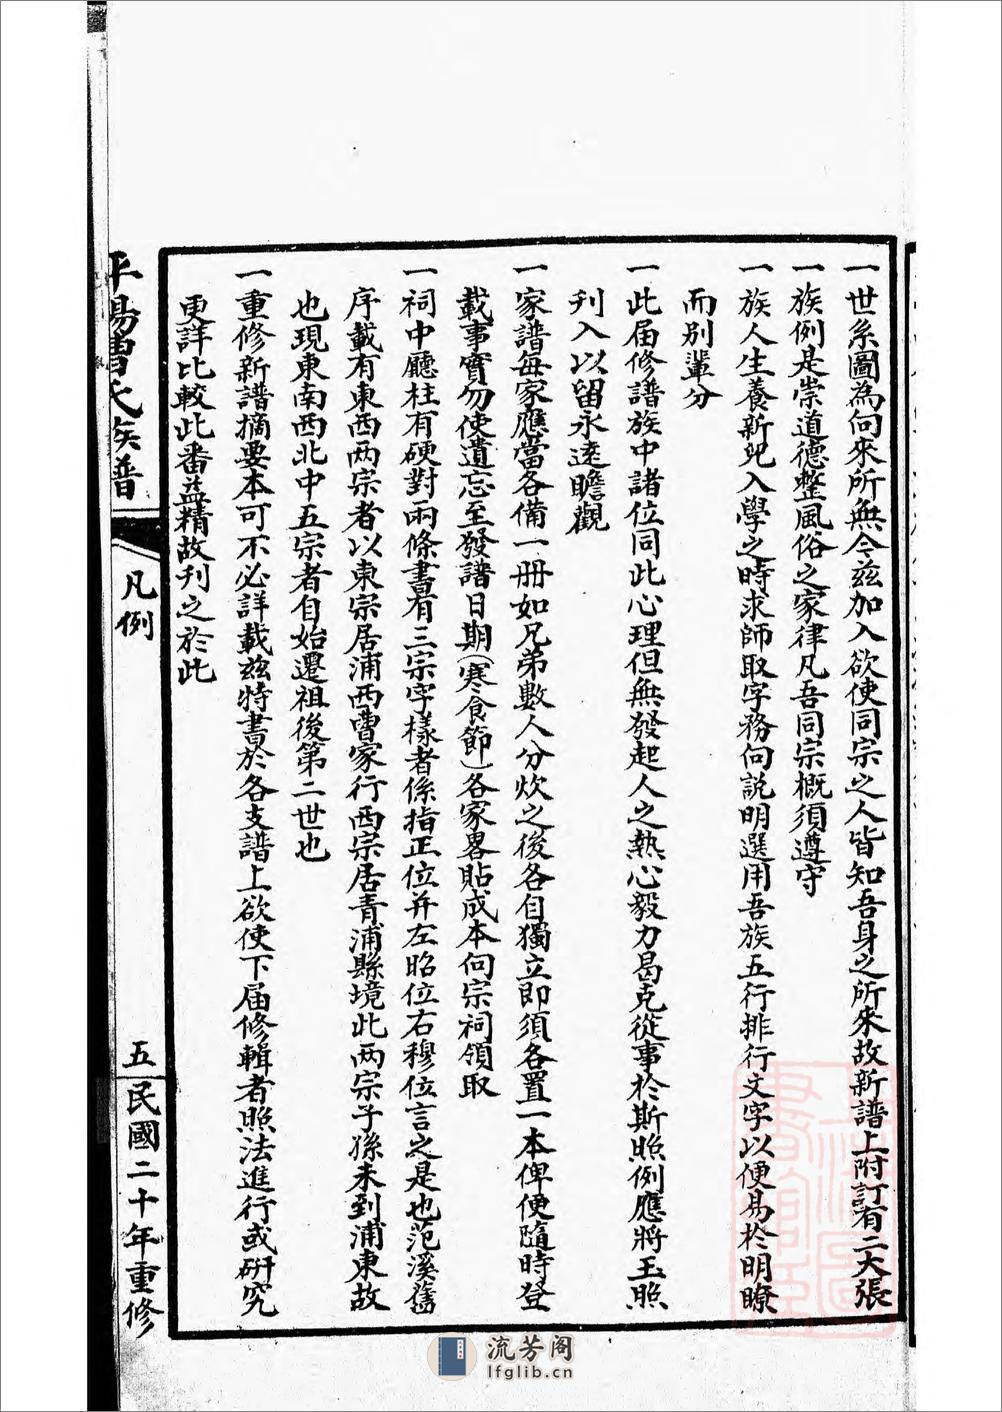 一世系圖為向來所無今兹加入欲使同宗之人皆知吾身之所來故新譜上附訂有二大張
一族例是崇道德整風俗之家律凡吾同宗概須遵守
一族人生養新兒入學之時求師取字務向説明選用吾族五行排行文字以便易於明瞭
而別輩分
一此届修譜族中諸位同此心理但無發起人之熱心毅力曷克從事於斯照例應將玉照
刊入以留永遠瞻觀
一家譜每家應當各備一册如兄弟數人分炊之後各自獨立即須各置一本俾便隨時登
載事實勿使遺忘至發譜日期(寒食節)各家畧貼成本向宗祠領取
一祠中廳柱有硬對兩條書有三宗字樣者係指正位并左昭位右穆位言之是也范溪舊
序載有東西两宗者以東宗居浦西曹家行西宗居青浦縣境此两宗子孫未到浦東故
也現東南西北中五宗者自始遷祖後第二世也
一重修新譜摘要本可不必詳載兹特書於各支譜上欲使下届修輯者照法進行或研究
更詳比較此番益精故刊之於此
平陽曹氏族譜
凡例
五
民國二十年重修
流芳阁
lfglib.cn